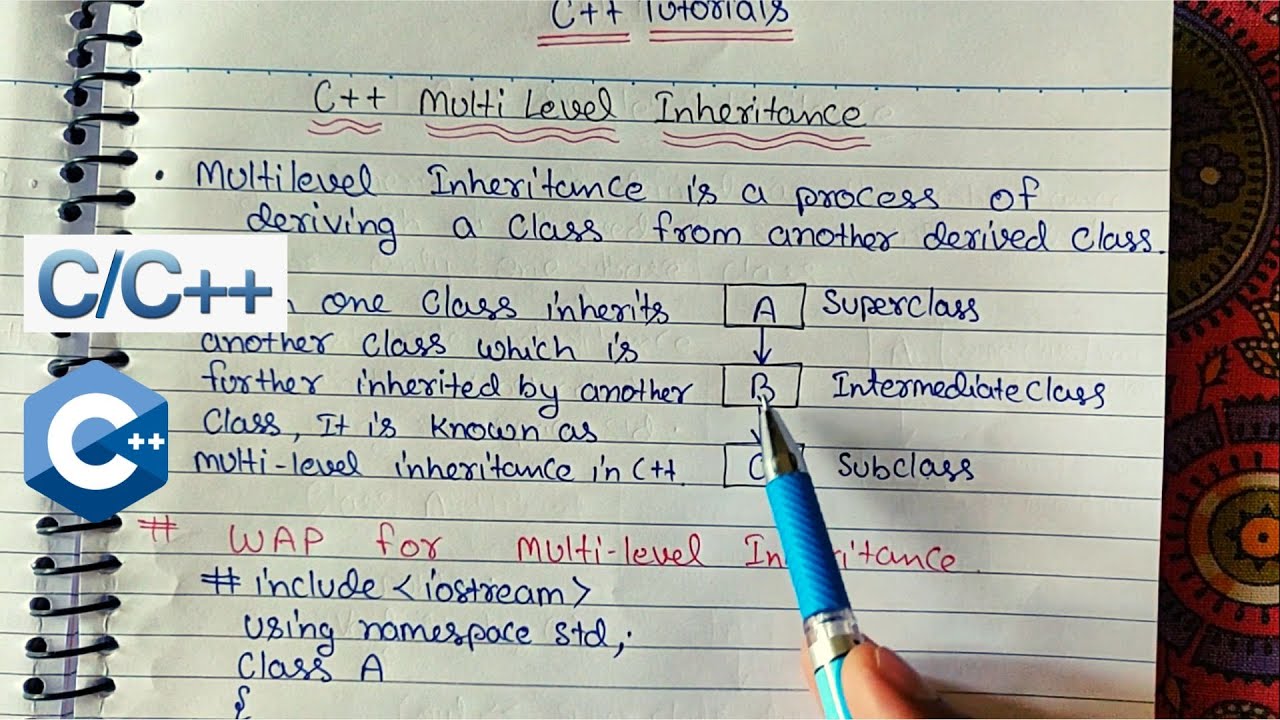 C++ Tutorials
C++ Multi Level Inheritance
• Multilevel Inheritance is a process of
deriving a Class from another derived Class.
C/C++
one Class inherits
A Superclass
another Class which is
further inherited by another
B Intermediate Class
Class, It is known as
multi-level inheritance in C++.
C Subclass
C++
# WAP for multi-level Inheritance
# include <iostream>
using namespace std;
Class A
{